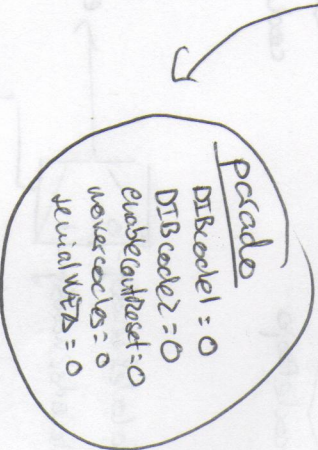 parado
DIBcode1 = 0
DIBcode2 = 0
enableContReset=0
movercoches = 0
serialWAIT = 0